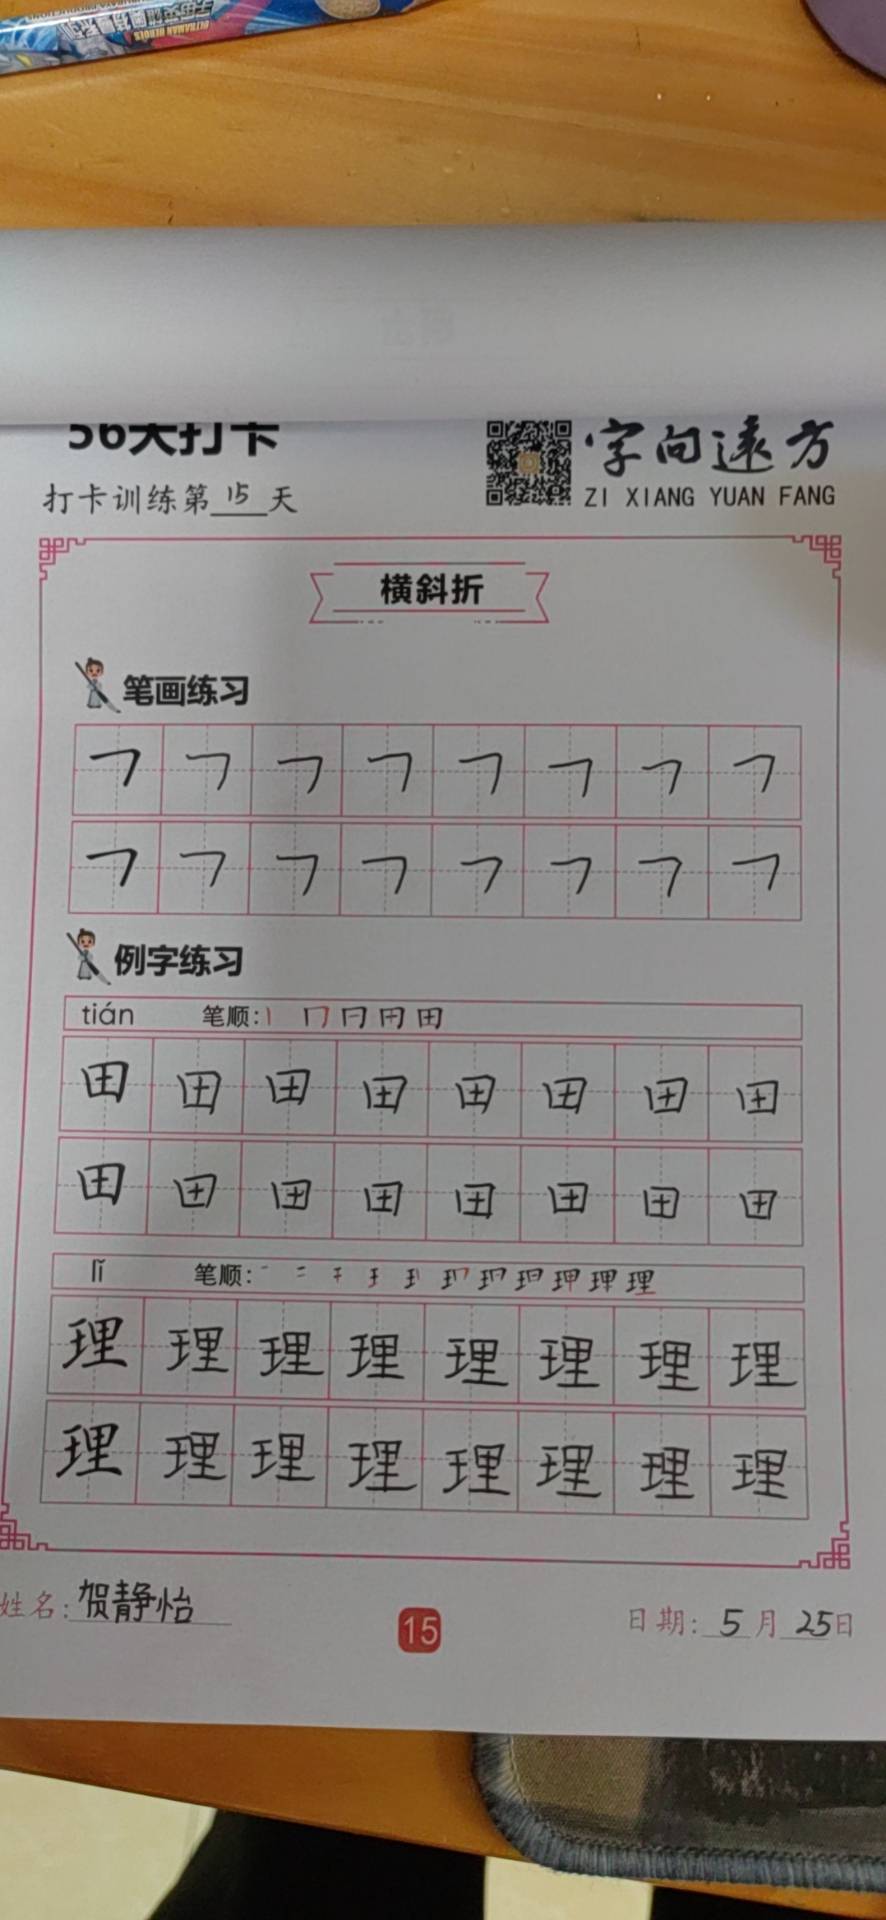 ULTRAMAN HEROES
56天打卡
字向远方
打卡训练第15天
ZI XIANG YUAN FANG
横斜折
笔画练习
㇕ ㇕ ㇕ ㇕ ㇕ ㇕ ㇕ ㇕
㇕ ㇕ ㇕ ㇕ ㇕ ㇕ ㇕ ㇕
例字练习
tián 笔顺:
田 田 田 田 田 田 田 田
田 田 田 田 田 田 田 田
lǐ 笔顺:
理 理 理 理 理 理 理 理
理 理 理 理 理 理 理 理
姓名:贺静怡
15
日期:5月25日